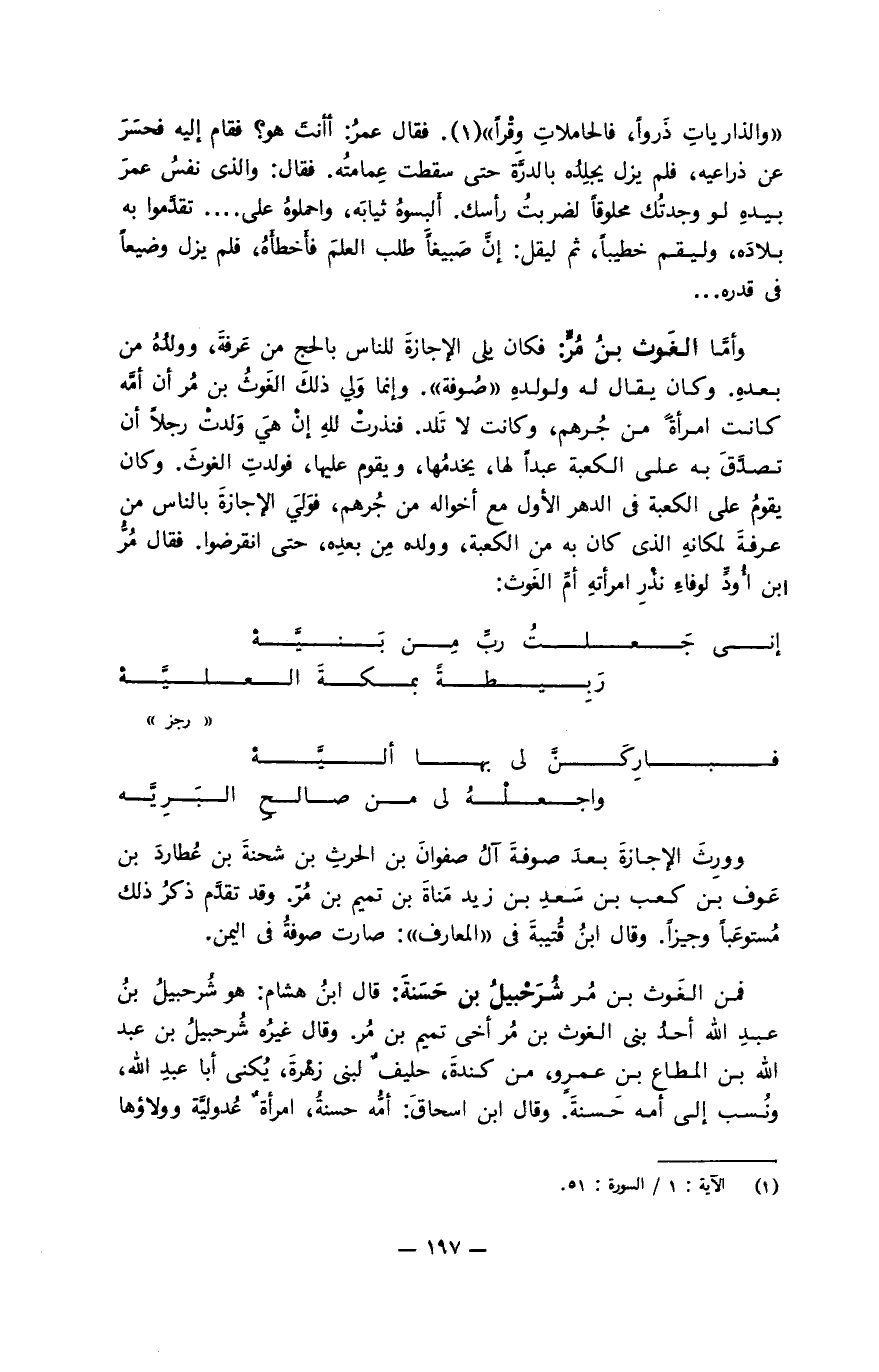 «والذارياتِ ذَرواً، فالحاملاتِ وِقْراً»(١). فقال عمرُ: أأنتَ هو؟ فقام إليه فحسَرَ
عن ذراعيه، فلم يزل يجلِدُه بالدرَّة حتى سقطت عِمامتُه. فقال: والذى نفسُ عمرَ
بيدهِ لو وجدتُك محلوقاً لضربتُ رأسك. ألبسوهُ ثيابَه، واحملوهُ على.... تقدَّموا به
بلادَه، وليقم خطيباً، ثم ليقل: إنَّ صَبيغاً طلب العلمَ فأخطأَهُ، فلم يزل وضيعاً
فى قدره...
وأمَّا الغَوث بنُ مُرٍّ: فكان يلى الإجازةَ للناس بالحج من عَرفةَ، وولدُهُ من
بعدهِ. وكان يقال له ولولدهِ «صُوفة». وإنما وَلي ذلكَ الغَوثُ بن مُر أن أمَّه
كانت امرأةً من جُرهم، وكانت لا تَلد. فنذرتْ للهِ إنْ هيَ وَلدتْ رجلاً أن
تصدَّقَ به على الكعبة عبداً لها، يخدمُها، ويقوم عليها، فولدتِ الغوثَ. وكان
يقومُ على الكعبة فى الدهر الأول مع أخواله من جُرهم، فوَليَ الإجازةَ بالناس من
عرفةَ لمكانهِ الذى كان به من الكعبة، وولده مِن بعدِه، حتى انقرضوا. فقال مُرُّ
ابن أُودٍّ لوفاءِ نذْرِ امرأتهِ أمِّ الغَوث:
إنى جَعلتُ ربِّ مِن بَنيَّهْ
رَبِيطةً بمكةَ العليَّهْ
« رجز »
فباركَنَّ لى بها ألـيَّهْ
واجعلْهُ لى من صالحِ البَرِيَّه
وورِثَ الإجازةَ بعدَ صوفةَ آلُ صفوانَ بن الحرثِ بن شحنةَ بن عُطاردَ بن
عَوف بن كعب بن سَعدِ بن زيد مَناةَ بن تميم بن مُرّ. وقد تقدَّم ذكرُ ذلك
مُستوعَباً وجيزاً. وقال ابنُ قُتيبةَ فى «المعارف»: صارت صوفةُ فى اليمن.
فمن الغَوث بن مُر شُرَحْبيلُ بن حَسَنةَ: قال ابنُ هشام: هو شُرحبيلُ بنُ
عبدِ الله أحدُ بنى الغوث بن مُر أخى تميم بن مُر. وقال غيرُه شُرحبيلُ بن عبد
الله بن المطاع بن عمرو، من كندةَ، حليفٌ لبنى زهْرةَ، يُكنى أبا عبدِ الله،
ونُسب إلى أمه حَسنةَ. وقال ابن اسحاقَ: أمُّه حسنةُ، امرأةٌ عُدوليَّة وولاؤها
(١) الآية : ١ / السورة : ٥١.
— ١٩٧ —